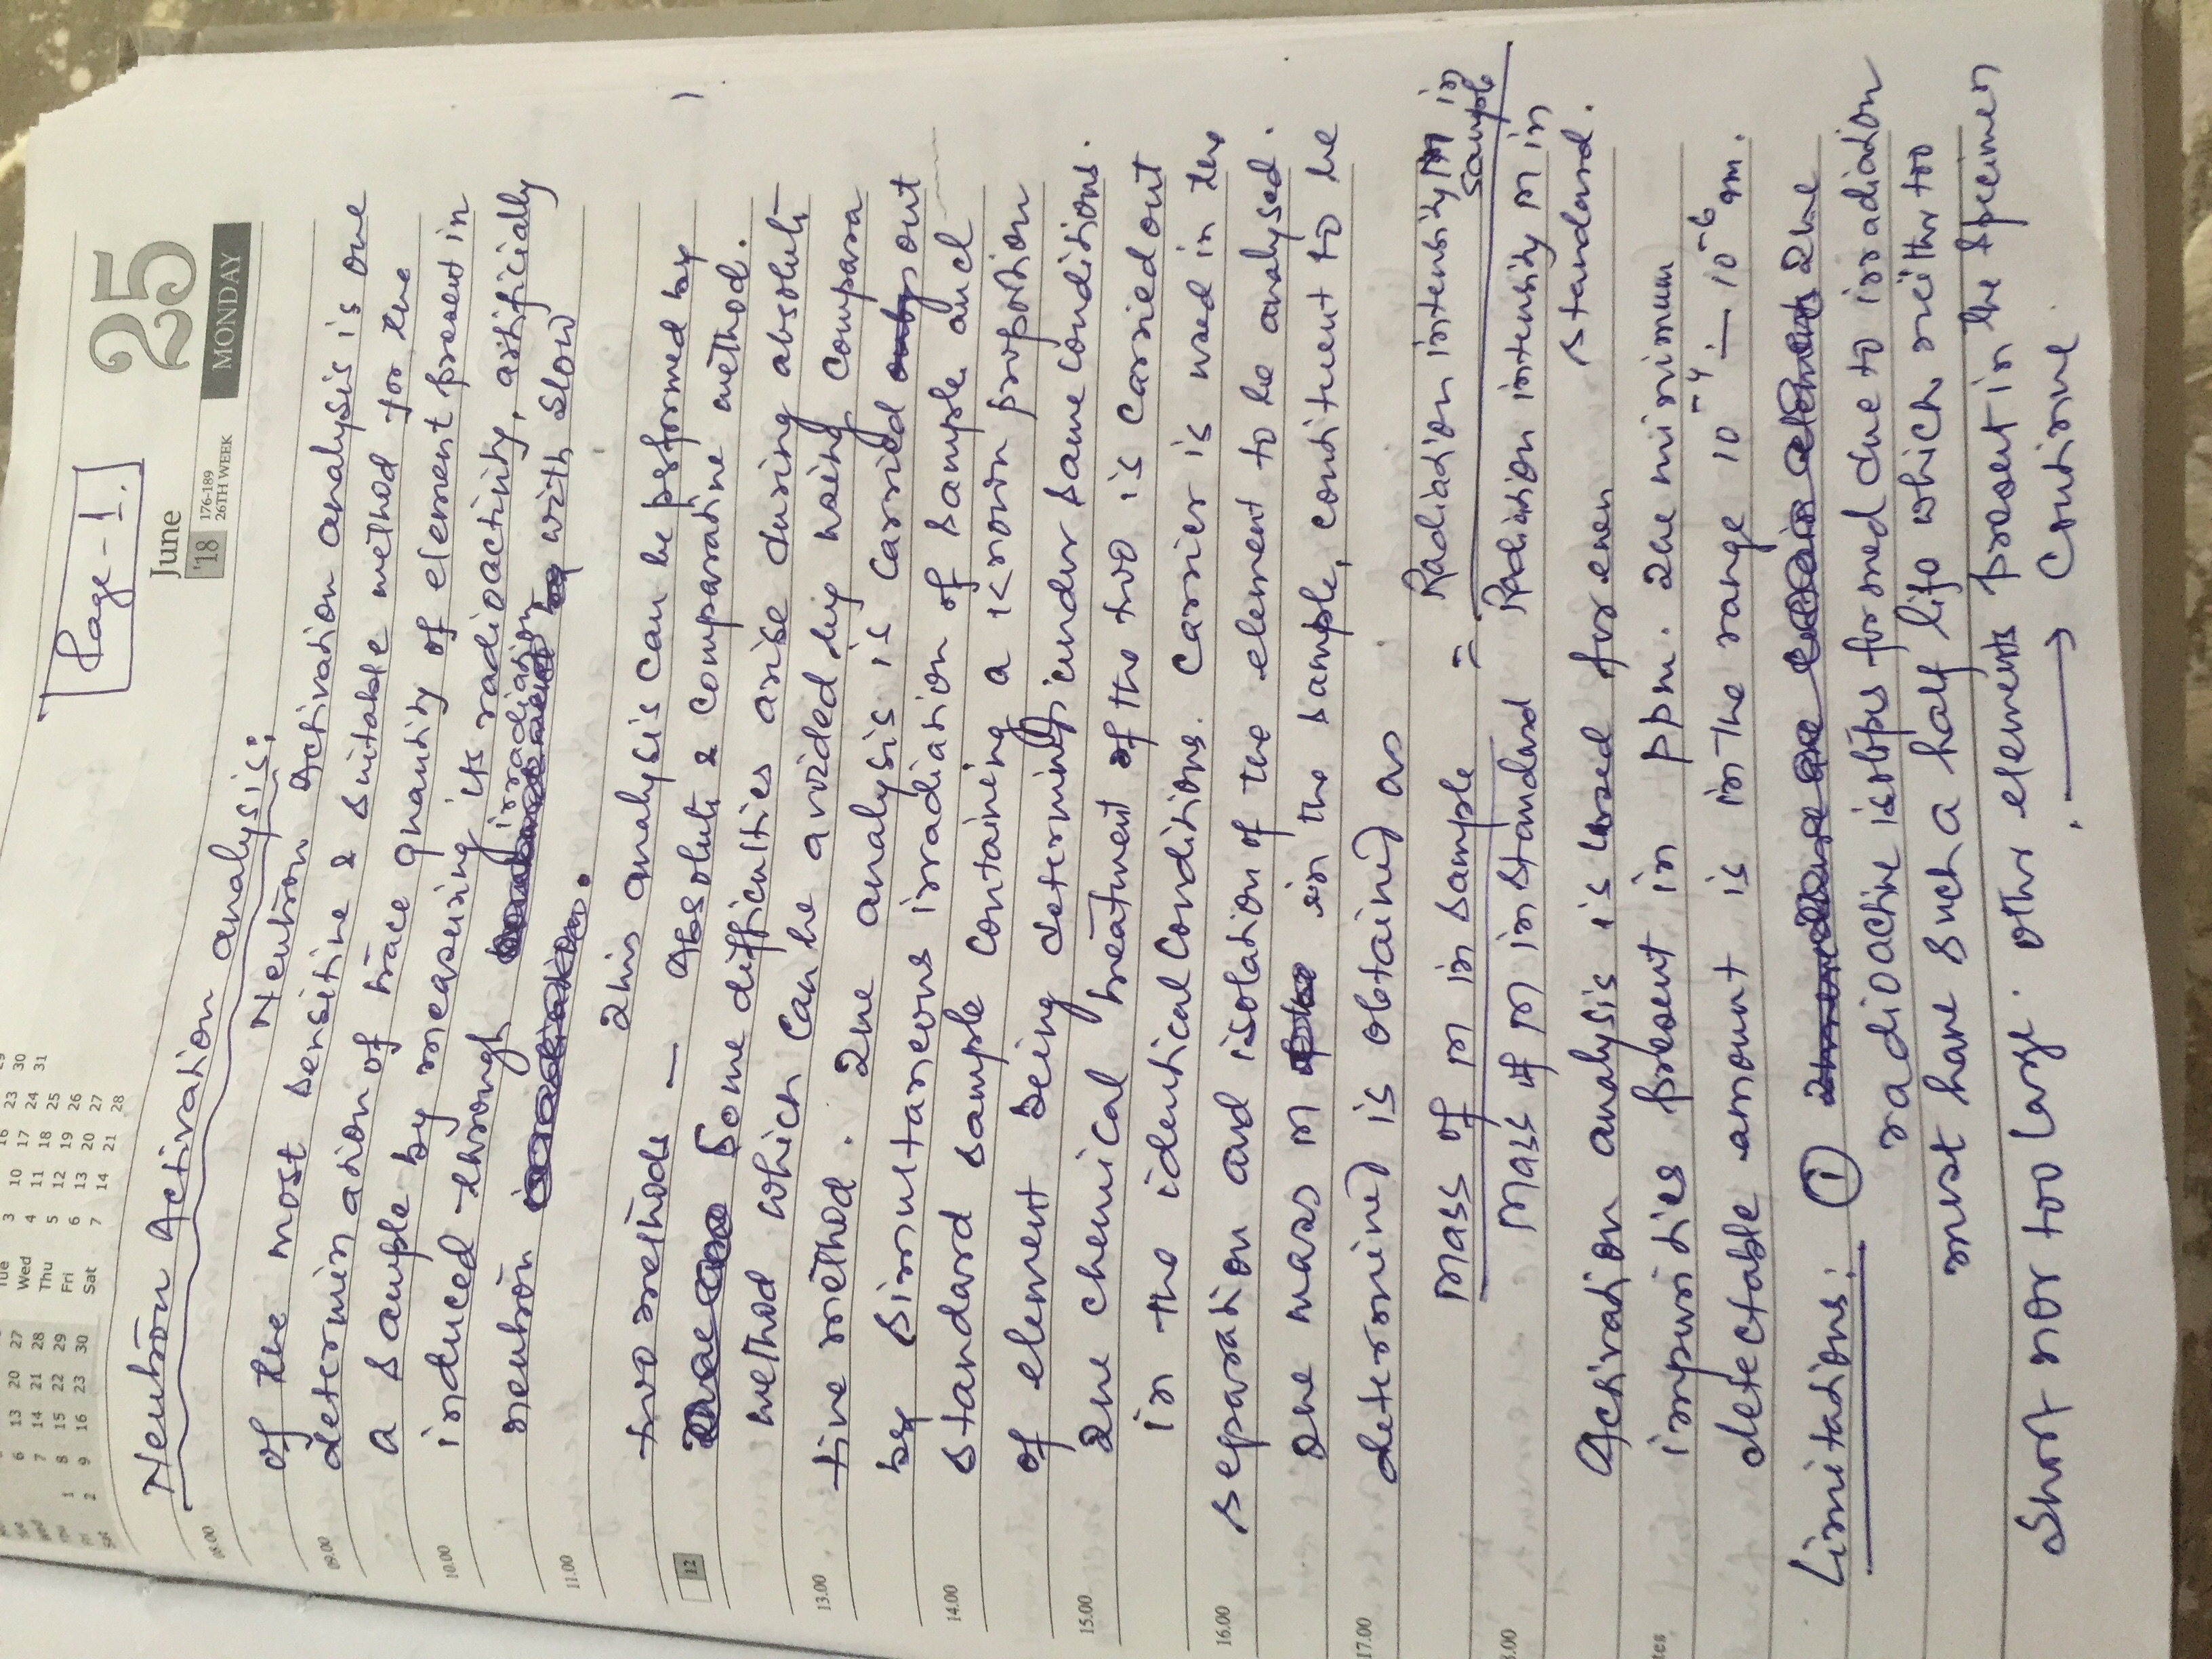 Page - 1.
June
25
'18
176-189
26TH WEEK
MONDAY
23 30
3 10 17 24 31
Wed 4 11 18 25
Thu 5 12 19 26
Fri 6 13 20 27
Sat 7 14 21 28
6 13 20 27
7 14 21 28
1 8 15 22 29
2 9 16 23 30
Neutron Activation analysis:
08.00
Neutron Activation analysis is one
of the most sensitive & suitable method for the
09.00
determination of trace quantity of element present in
a sample by measuring its radioactivity, artificially
10.00
induced through irradiation with slow
neutron.
11.00
This analysis can be performed by
two methods — Absolute & comparative method.
12
Some difficulties arise during absolute
method which can be avoided by using compara
13.00
tive method. The analysis is carried out
by simultaneous irradiation of sample and
14.00
standard sample containing a known proportion
of element being determined, under same conditions.
15.00
The chemical treatment of the two is carried out
in the identical conditions. Carrier is used in the
16.00
separation and isolation of the element to be analysed.
The mass m in the sample, constituent to be
17.00
determined is obtained as
Mass of m in sample = Radiation intensity m in sample
Mass of m in standard Radiation intensity m in
standard.
Activation analysis is used for even
impurities present in ppm. The minimum
detectable amount is in the range 10⁻⁴ – 10⁻⁶ gm.
Limitations: ① The
radioactive isotopes formed due to irradiation
must have such a half life which neither too
short nor too large. other elements present in the specimen
. → Continue.